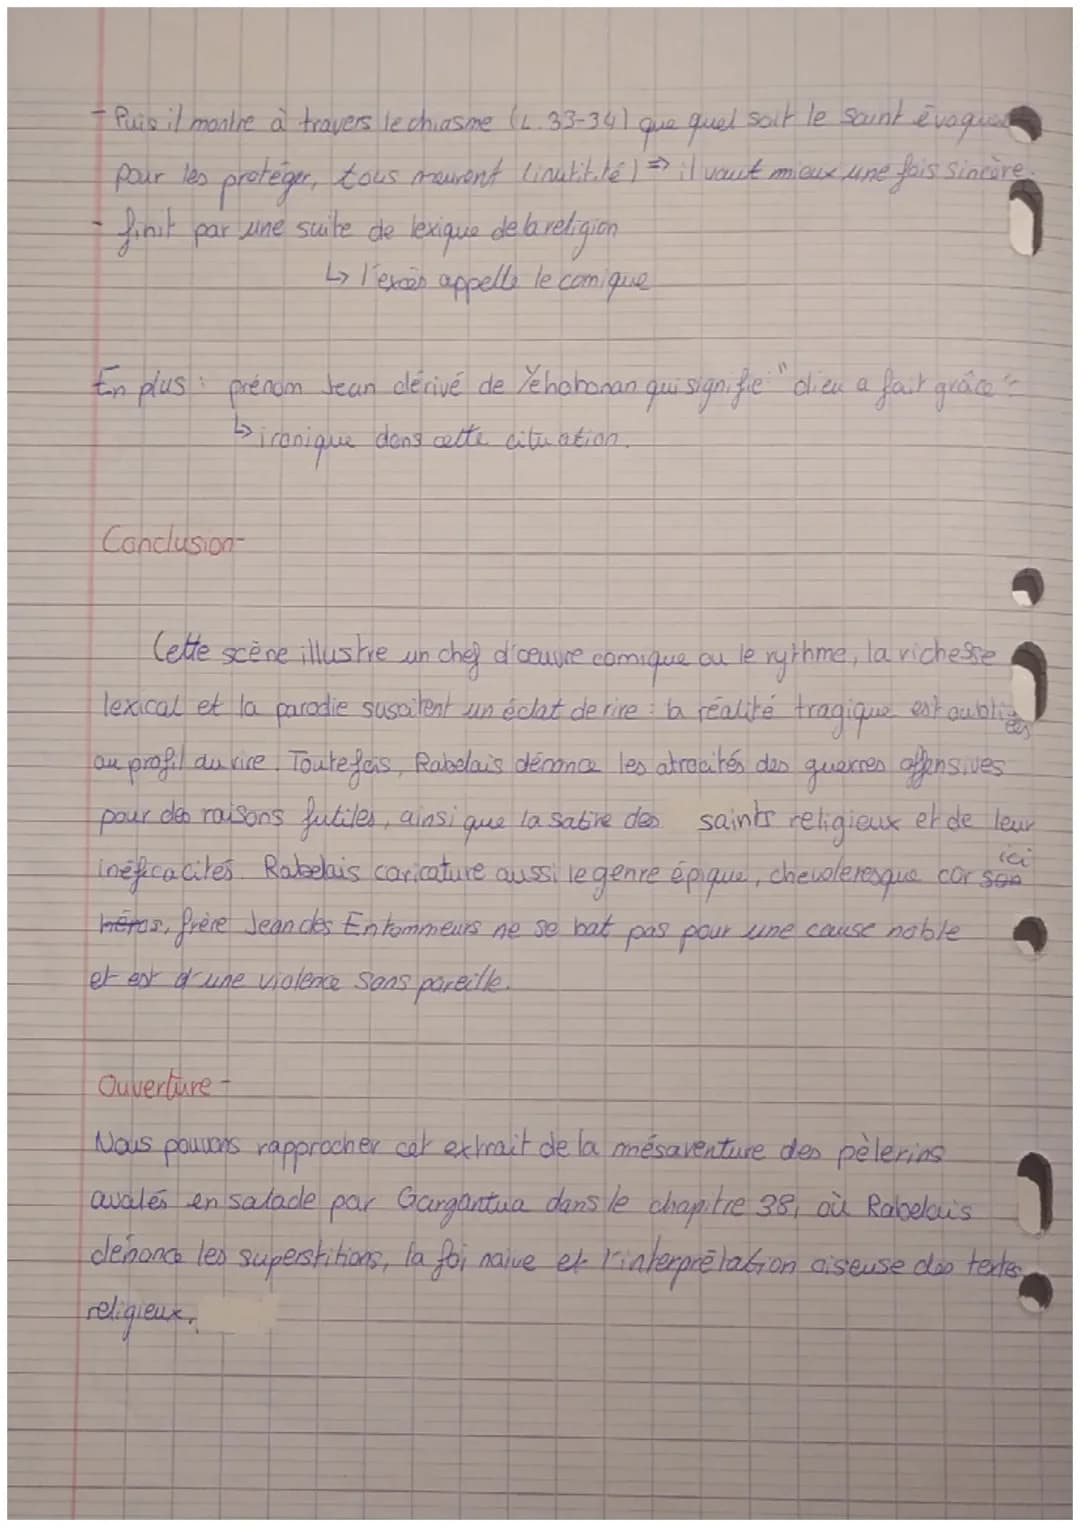 - Puis il montre à travers le chiasme (L.33-34) que quel soit le saint évoqué
pour les protéger, tous meurent (inutilité) => il vaut mieux une fois sincère.
- finit par une suite de lexique de la religion
↳ l'excès appelle le comique
En plus : prénom Jean dérivé de Yehohanan qui signifie "dieu a fait grâce"
↳ ironique dans cette cituation.
Conclusion-
Cette scène illustre un chef d'œuvre comique ou le rythme, la richesse
lexical et la parodie suscitent un éclat de rire : la réalité tragique est oubliées
au profil du rire. Toutefois, Rabelais dénonce les atrocités des guerres offensives
pour des raisons futiles, ainsi que la satire des saints religieux et de leur
inéficacités. Rabelais caricature aussi le genre épique, chevaleresque car son ici
héros, frère Jean des Entommeurs ne se bat pas pour une cause noble
et est d'une violence sans pareille.
Ouverture -
Nous pouvons rapprocher cet extrait de la mésaventure des pèlerins
avalés en salade par Gargantua dans le chapitre 38, où Rabelais
dénonce les superstitions, la foi naïve et l'interprétation oiseuse des textes
religieux.